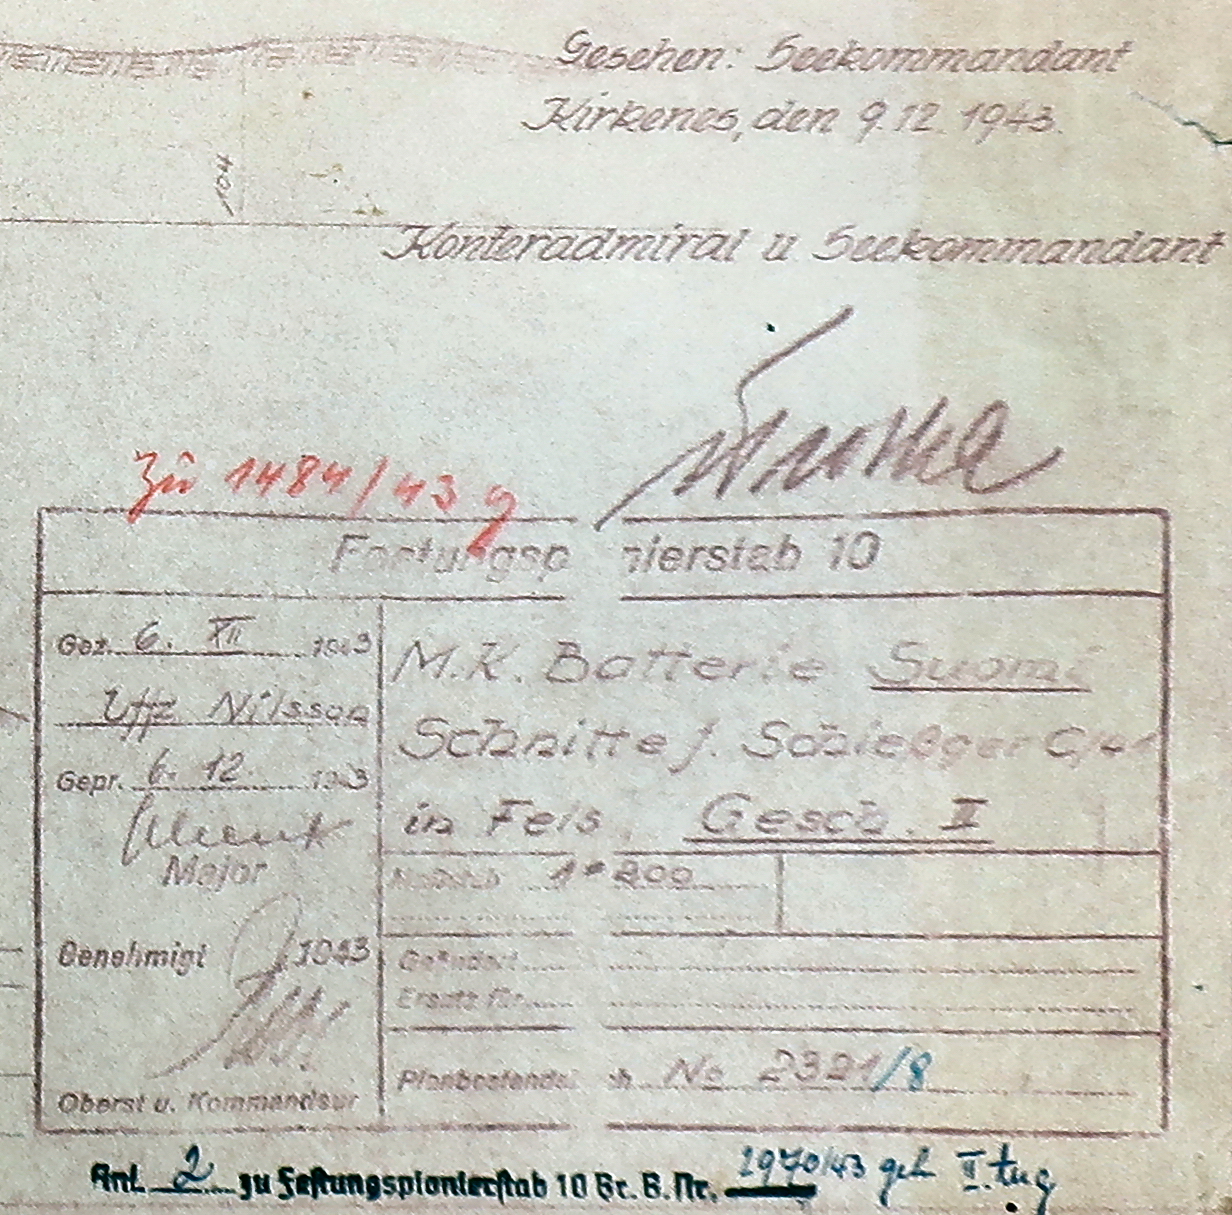 Gesehen: Seekommandant
Kirkenes, den 9.12.1943.
104
Konteradmiral u Seekommandant
Zu 1484/43 g
Festungsp nierstab 10
Gez. 6. XII 1943
Uffz Nilsson
Gepr. 6. 12. 1943
Major
Genehmigt 1943
Oberst u. Kommandeur
M.K. Batterie Suomi
Schnitte f. Schießger
in Fels, Gesch. II
Maßstab 1:200
Geändert
Ersatz für
Planbestands h No 2321/8
Anl. 2 zu Festungspionierstab 10 Br. B. Nr. 1970/43 geh II. tug